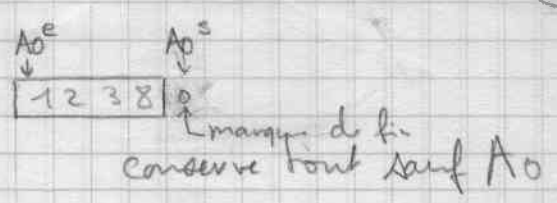 A0^e A0^s
1 2 3 8 0
marque de fin
conserve tout sauf A0